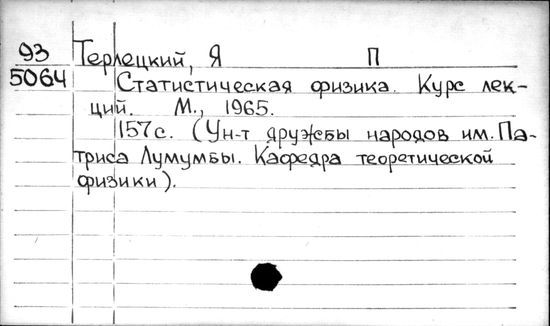 93 Терлецкий, Я П
5064 Статистическая физика. Курс лек-
ций. М., 1965.
157с. (Ун-т дружбы народов им. Па-
триса Лумумбы. Кафедра теоретической
физики).